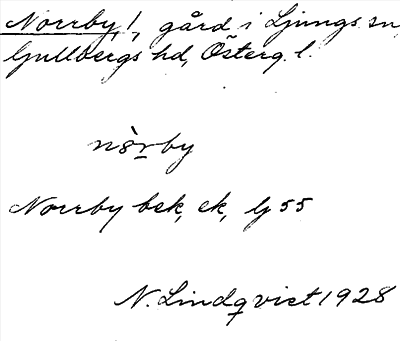 Norrby, 1, gård i Ljungs sn,
Gullbergs hd, Österg. l.
nòrby
Norrby bek, ek, Lj 55
N. Lindqvist 1928